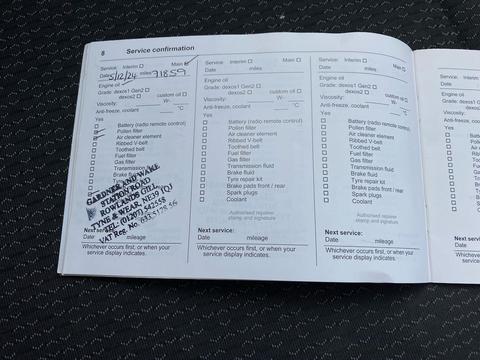 8 Service confirmation
Service: Interim Main
Date 5/12/24 miles 71859
Engine oil
Grade: dexos1 Gen2
dexos2 custom oil
Viscosity: W-
Anti-freeze, coolant °C
Yes
Battery (radio remote control)
Pollen filter
Air cleaner element
Ribbed V-belt
Toothed belt
Fuel filter
Gas filter
Transmission
Brake
GARDNER AND WARE
STATION ROAD
ROWLANDS GILL
TYNE & WEAR, NE39 1QJ
TEL. (01207) 542558
VAT Reg. No.
Next service:
Date mileage
Whichever occurs first, or when your
service display indicates.
Service: Interim Main
Date miles
Engine oil
Grade: dexos1 Gen2
dexos2 custom oil
Viscosity: W-
Anti-freeze, coolant °C
Yes
Battery (radio remote control)
Pollen filter
Air cleaner element
Ribbed V-belt
Toothed belt
Fuel filter
Gas filter
Transmission fluid
Brake fluid
Tyre repair kit
Brake pads front / rear
Spark plugs
Coolant
Authorised repairer
stamp and signature
Next service:
Date mileage
Whichever occurs first, or when your
service display indicates.
Service: Interim Main
Date miles
Engine oil
Grade: dexos1 Gen2
dexos2 custom oil
Viscosity: W-
Anti-freeze, coolant °C
Yes
Battery (radio remote control)
Pollen filter
Air cleaner element
Ribbed V-belt
Toothed belt
Fuel filter
Gas filter
Transmission fluid
Brake fluid
Tyre repair kit
Brake pads front / rear
Spark plugs
Coolant
Authorised repairer
stamp and signature
Next service:
Date mileage
Whichever occurs first, or when your
service display indicates.
Service:
Date
Engine oil
Grade: dexos1
Viscosity:
Anti-freeze, coolant
Yes
Next service:
Date
Whichever occurs
service display